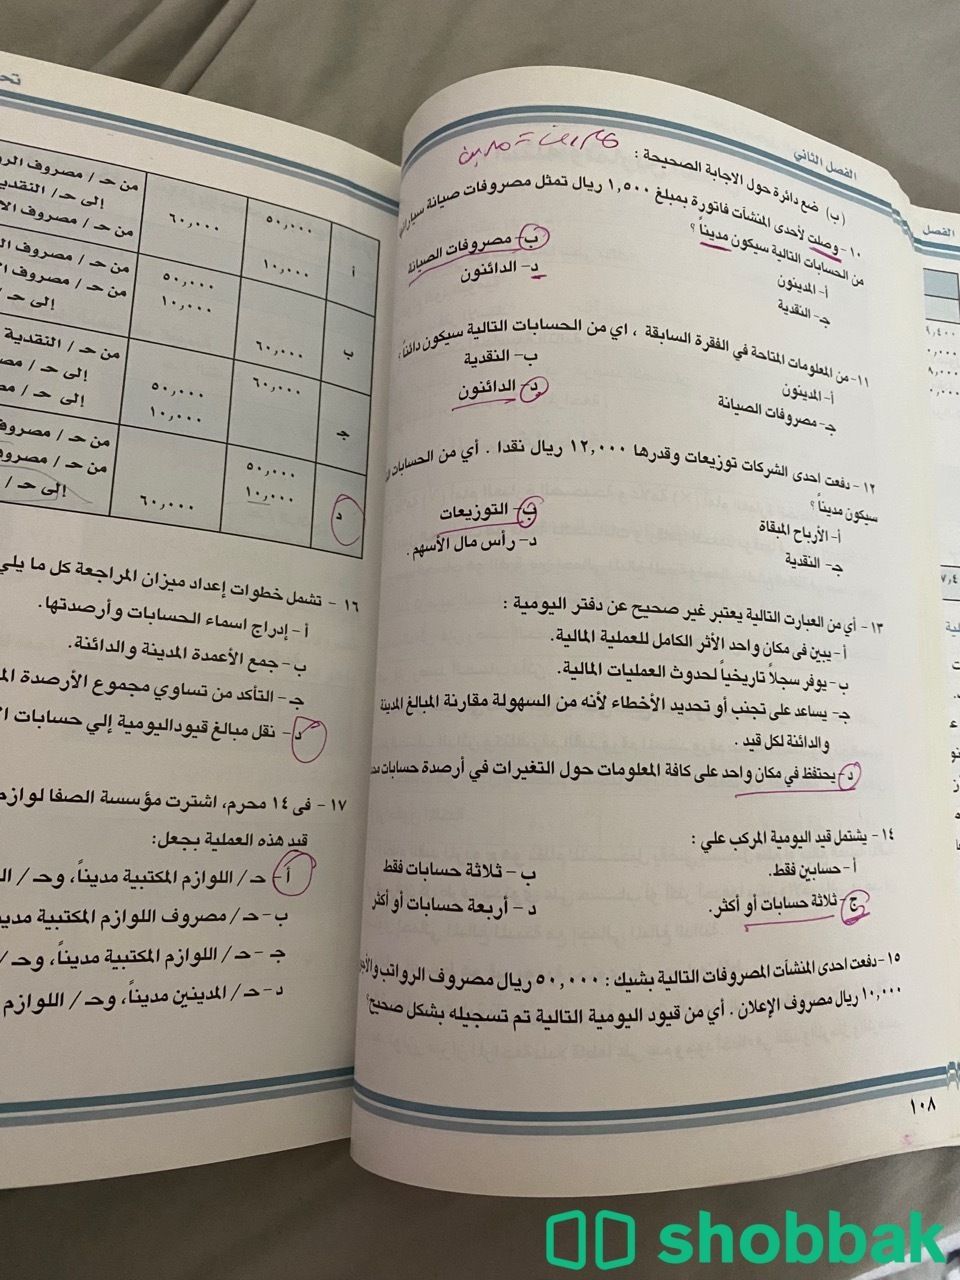 الفصل الثاني
(ب) ضع دائرة حول الاجابة الصحيحة :
١٠- وصلت لأحدى المنشآت فاتورة بمبلغ ١,٥٠٠ ريال تمثل مصروفات صيانة
من الحسابات التالية سيكون مديناً ؟
أ- المدينون
ب- مصروفات الصيانة
جـ- النقدية
د- الدائنون
١١- من المعلومات المتاحة في الفقرة السابقة ، اي من الحسابات التالية سيكون دائناً ؟
أ- المدينون
ب- النقدية
جـ- مصروفات الصيانة
د- الدائنون
١٢- دفعت احدى الشركات توزيعات وقدرها ١٢,٠٠٠ ريال نقدا . أي من الحسابات
سيكون مديناً ؟
أ- الأرباح المبقاة
ب- التوزيعات
جـ- النقدية
د- رأس مال الأسهم .
١٣- أي من العبارت التالية يعتبر غير صحيح عن دفتر اليومية :
أ- يبين فى مكان واحد الأثر الكامل للعملية المالية.
ب- يوفر سجلاً تاريخياً لحدوث العمليات المالية.
جـ- يساعد على تجنب أو تحديد الأخطاء لأنه من السهولة مقارنة المبالغ المدينة
والدائنة لكل قيد .
د- يحتفظ في مكان واحد على كافة المعلومات حول التغيرات في أرصدة حسابات
١٤- يشتمل قيد اليومية المركب علي :
أ- حسابين فقط.
ب - ثلاثة حسابات فقط
ج- ثلاثة حسابات أو أكثر.
د - أربعة حسابات أو أكثر
١٥- دفعت احدى المنشآت المصروفات التالية بشيك : ٥٠,٠٠٠ ريال مصروف الرواتب
١٠,٠٠٠ ريال مصروف الإعلان . أي من قيود اليومية التالية تم تسجيله بشكل صحيح؟
١٠٨
أ
٥٠,٠٠٠
٦٠,٠٠٠
من حـ / مصروف
إلى حـ / النقدية
١٠,٠٠٠
من حـ / مصروف
ب
٥٠,٠٠٠
من حـ / مصروف
١٠,٠٠٠
من حـ / مصروف
٦٠,٠٠٠
إلى حـ /
جـ
٦٠,٠٠٠
من حـ / النقدية
٥٠,٠٠٠
إلى حـ /
١٠,٠٠٠
إلى حـ /
د
٥٠,٠٠٠
من حـ / مصروف
١٠,٠٠٠
من حـ /
٦٠,٠٠٠
إلى حـ /
١٦ - تشمل خطوات إعداد ميزان المراجعة كل ما يلي
أ - إدراج اسماء الحسابات وأرصدتها.
ب- جمع الأعمدة المدينة والدائنة.
جـ- التأكد من تساوي مجموع الأرصدة
د- نقل مبالغ قيوداليومية إلي حسابات
١٧ - فى ١٤ محرم، اشترت مؤسسة الصفا لوازم
قيد هذه العملية بجعل:
أ- حـ/ اللوازم المكتبية مديناً، وحـ/
ب- حـ/ مصروف اللوازم المكتبية
جـ - حـ/ اللوازم المكتبية مديناً، وحـ/
د- حـ/ المدينين مديناً، وحـ/ اللوازم
الفصل
shobbak